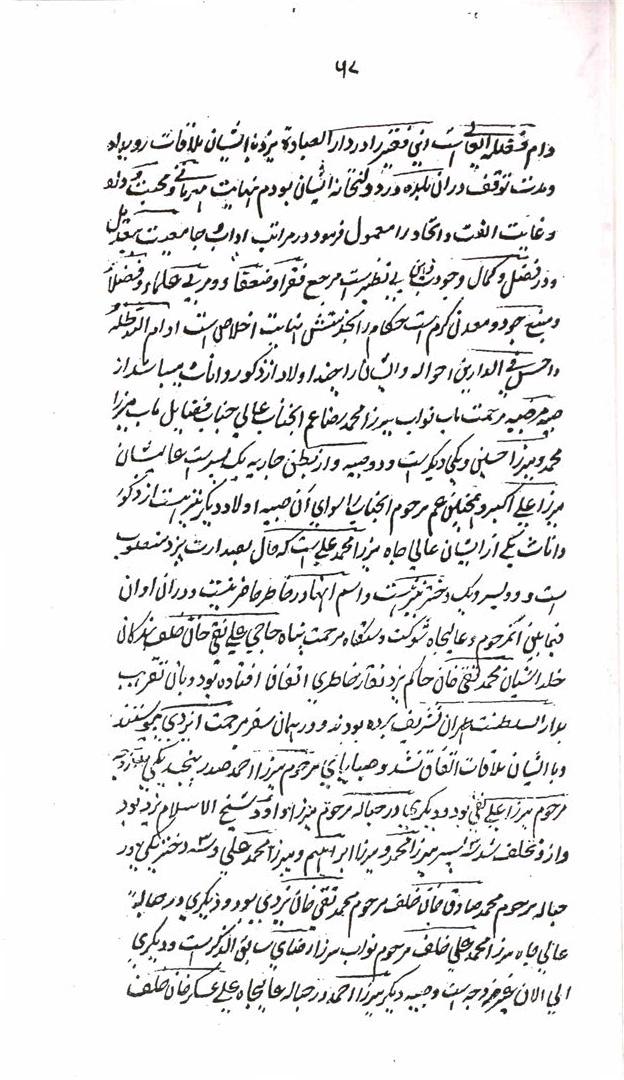 ۶۷
دام فضله العالی است این فقیر را در دار العبادة یزد با ایشان ملاقات رویداد
و مدت توقف در آن بلده در دولتخانه ایشان بودم نهایت مهربانی و محبت و وداد
و غایت الفت و اتحاد را معمول فرمود در مراتب آداب جامعیت بیعدیل
و در فضل و کمال وجودت بی نظیر است مرجع فقرا و ضعفا و مربی علماء و فضلا
و منبع جود و معدن کرم است حکام را بخدمتش نهایت اخلاص است ادام الله ظله
و احسن فی الدارین احواله و ایشان را چند اولاد از ذکور و اناث میباشد از
صبیه مرضیه مرحمت مآب نواب میرزا محمد رضا عم الجناب عالی جناب فضایل مآب میرزا
محمد و میرزا حسین و یکی دیگر است و دو صبیه و از بطن جاریه یک پسر است عالیشان
میرزا علی اکبر و عم مرحوم الجناب را سوای آن صبیه اولاد دیگر نیز هست از ذکور
و اناث یکی از ایشان عالی جاه میرزا محمد علی است که حال بصدارت یزد منصوب
است و دو پسر و یک دختر نیز هست و اسم آنها در خاطر حاضر نیست و در آن اوان
فیمابین آن مرحوم و عالیجاه شوکت دستگاه مرحمت پناه حاجی علی نقی خان خلف بندگان
خلد آشیان محمد تقی خان حاکم یزد نقار خاطری اتفاق افتاده بود و باین تقریب
بدار السلطنت طهران تشریف برده بودند و در همان سفر مرحمت ایزدی پیوستند
و با ایشان ملاقات اتفاق نشد و صبایای مرحوم میرزا احمد صدر پنجند یکی زوجه
مرحوم میرزا علی نقی بود و دیگری در حباله مرحوم میرزا داود شیخ الاسلام یزد بود
و از او تخلف شد سه پسر میرزا محمد و میرزا ابراهیم و میرزا محمد علی و سه دختر یکی در
حباله مرحوم محمد صادق خان خلف مرحوم محمد تقی خان یزدی بود و دیگری در حباله
عالی جاه میرزا محمد علی خلف مرحوم نواب میرزا رضای سابق الذکر است و دیگری
الی الان غیر مزوجه است و صبیه دیگر میرزا احمد در حباله عالیجاه علی عسکر خان خلف